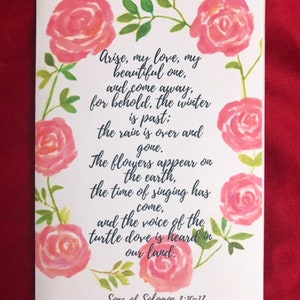 Arise, my love, my
beautiful one,
and come away,
for behold, the winter
is past;
the rain is over and
gone.
The flowers appear on
the earth,
the time of singing has
come,
and the voice of the
turtle dove is heard in
our land.
Song of Solomon 2:10-12